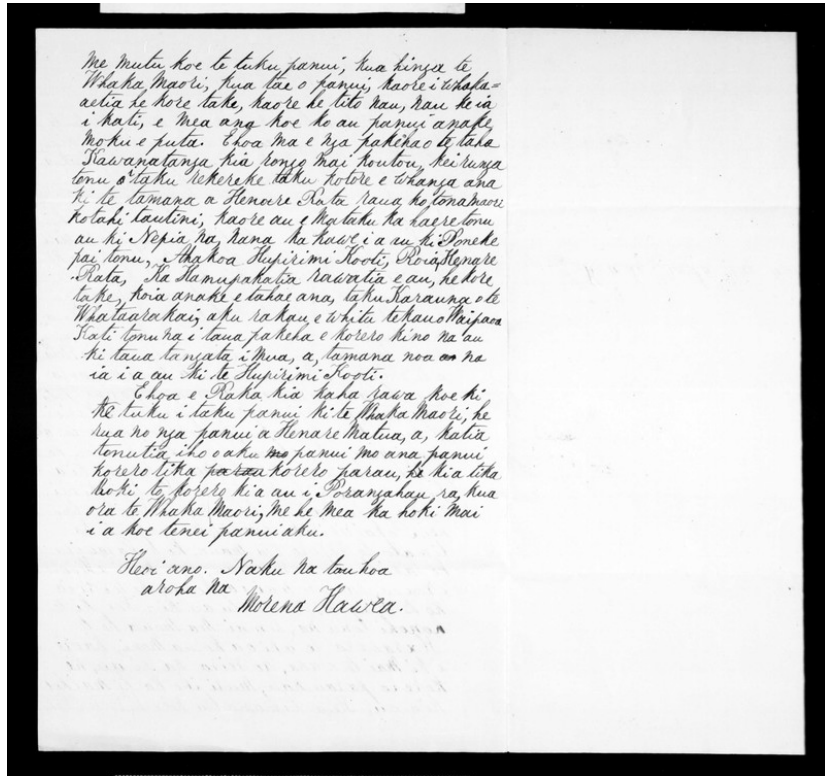 me mutu koe te tuku panui, kua hinga te
Whaka Maori, kua tae o panui, kaore i whaka=
aetia he kore take, kaore he tito nau, nau ke ia
i kati, e mea ana koe ko au panui anake
moku e puta. Ehoa ma e nga pakeha o te taha
Kawanatanga kia rongo mai koutou, kei runga
tonu o taku rekereke taku kotore e whanga ana
ki te tamana a Henare Rata raua ko tona maori
kotahi tautini, kaore au e mataku ka haere tonu
au ki Nepia na, nana ka kawe i a au ki Poneke
pai tonu, Ahakoa Hupirimi Kooti, Roia, Henare
Rata, Ka Hamupakatia rawatia e au, he kore
take, koia anake e tahae ana, taku Karauna o te
Whataarakai, aku rakau, e whitu tekau o Waipaoa
Kati tonu na i taua pakeha e korero kino na au
ki taua tangata i mua, a, tamana noa na
ia i a au ki te Hupirimi Kooti.
Ehoa e Raka kia kaha rawa koe ki
te tuku i taku panui ki te Whaka Maori, he
rua no nga panui a Henare Matua, a, katia
tonutia iho o aku mo panui mo ana panui
korero tika parau korero parau, he kia tika
hoki te korero kia au i Porangahau ra, kua
ora te Whaka Maori, me he mea ka hoki mai
i a koe tenei panui aku.
Heoi ano. Naku na tau hoa
aroha na
Morena Hawea.